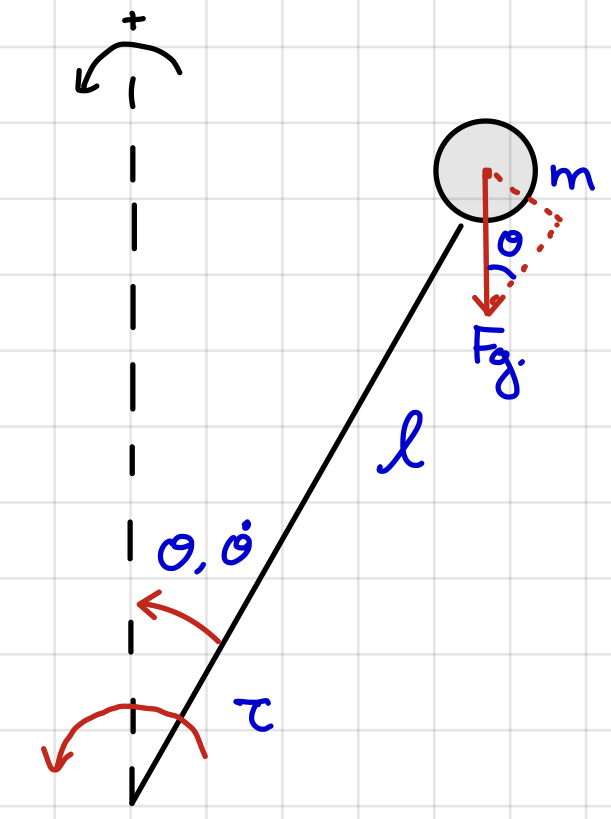 +
m
θ
Fg.
l
θ, θ̇
τ